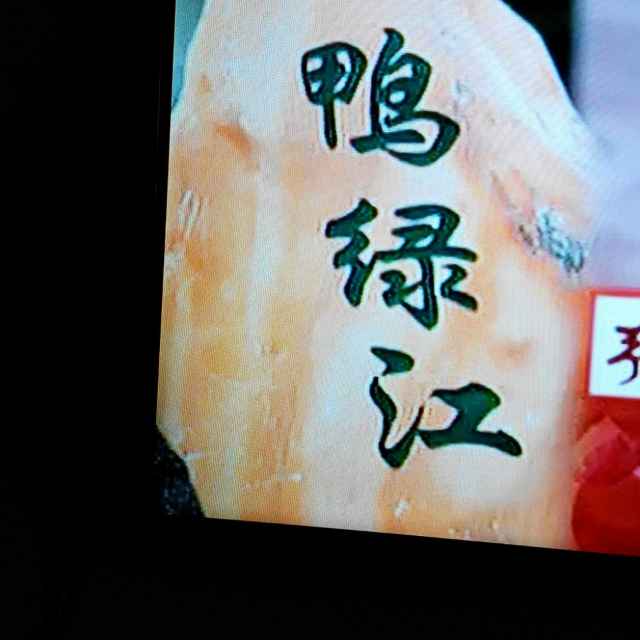 鸭绿江